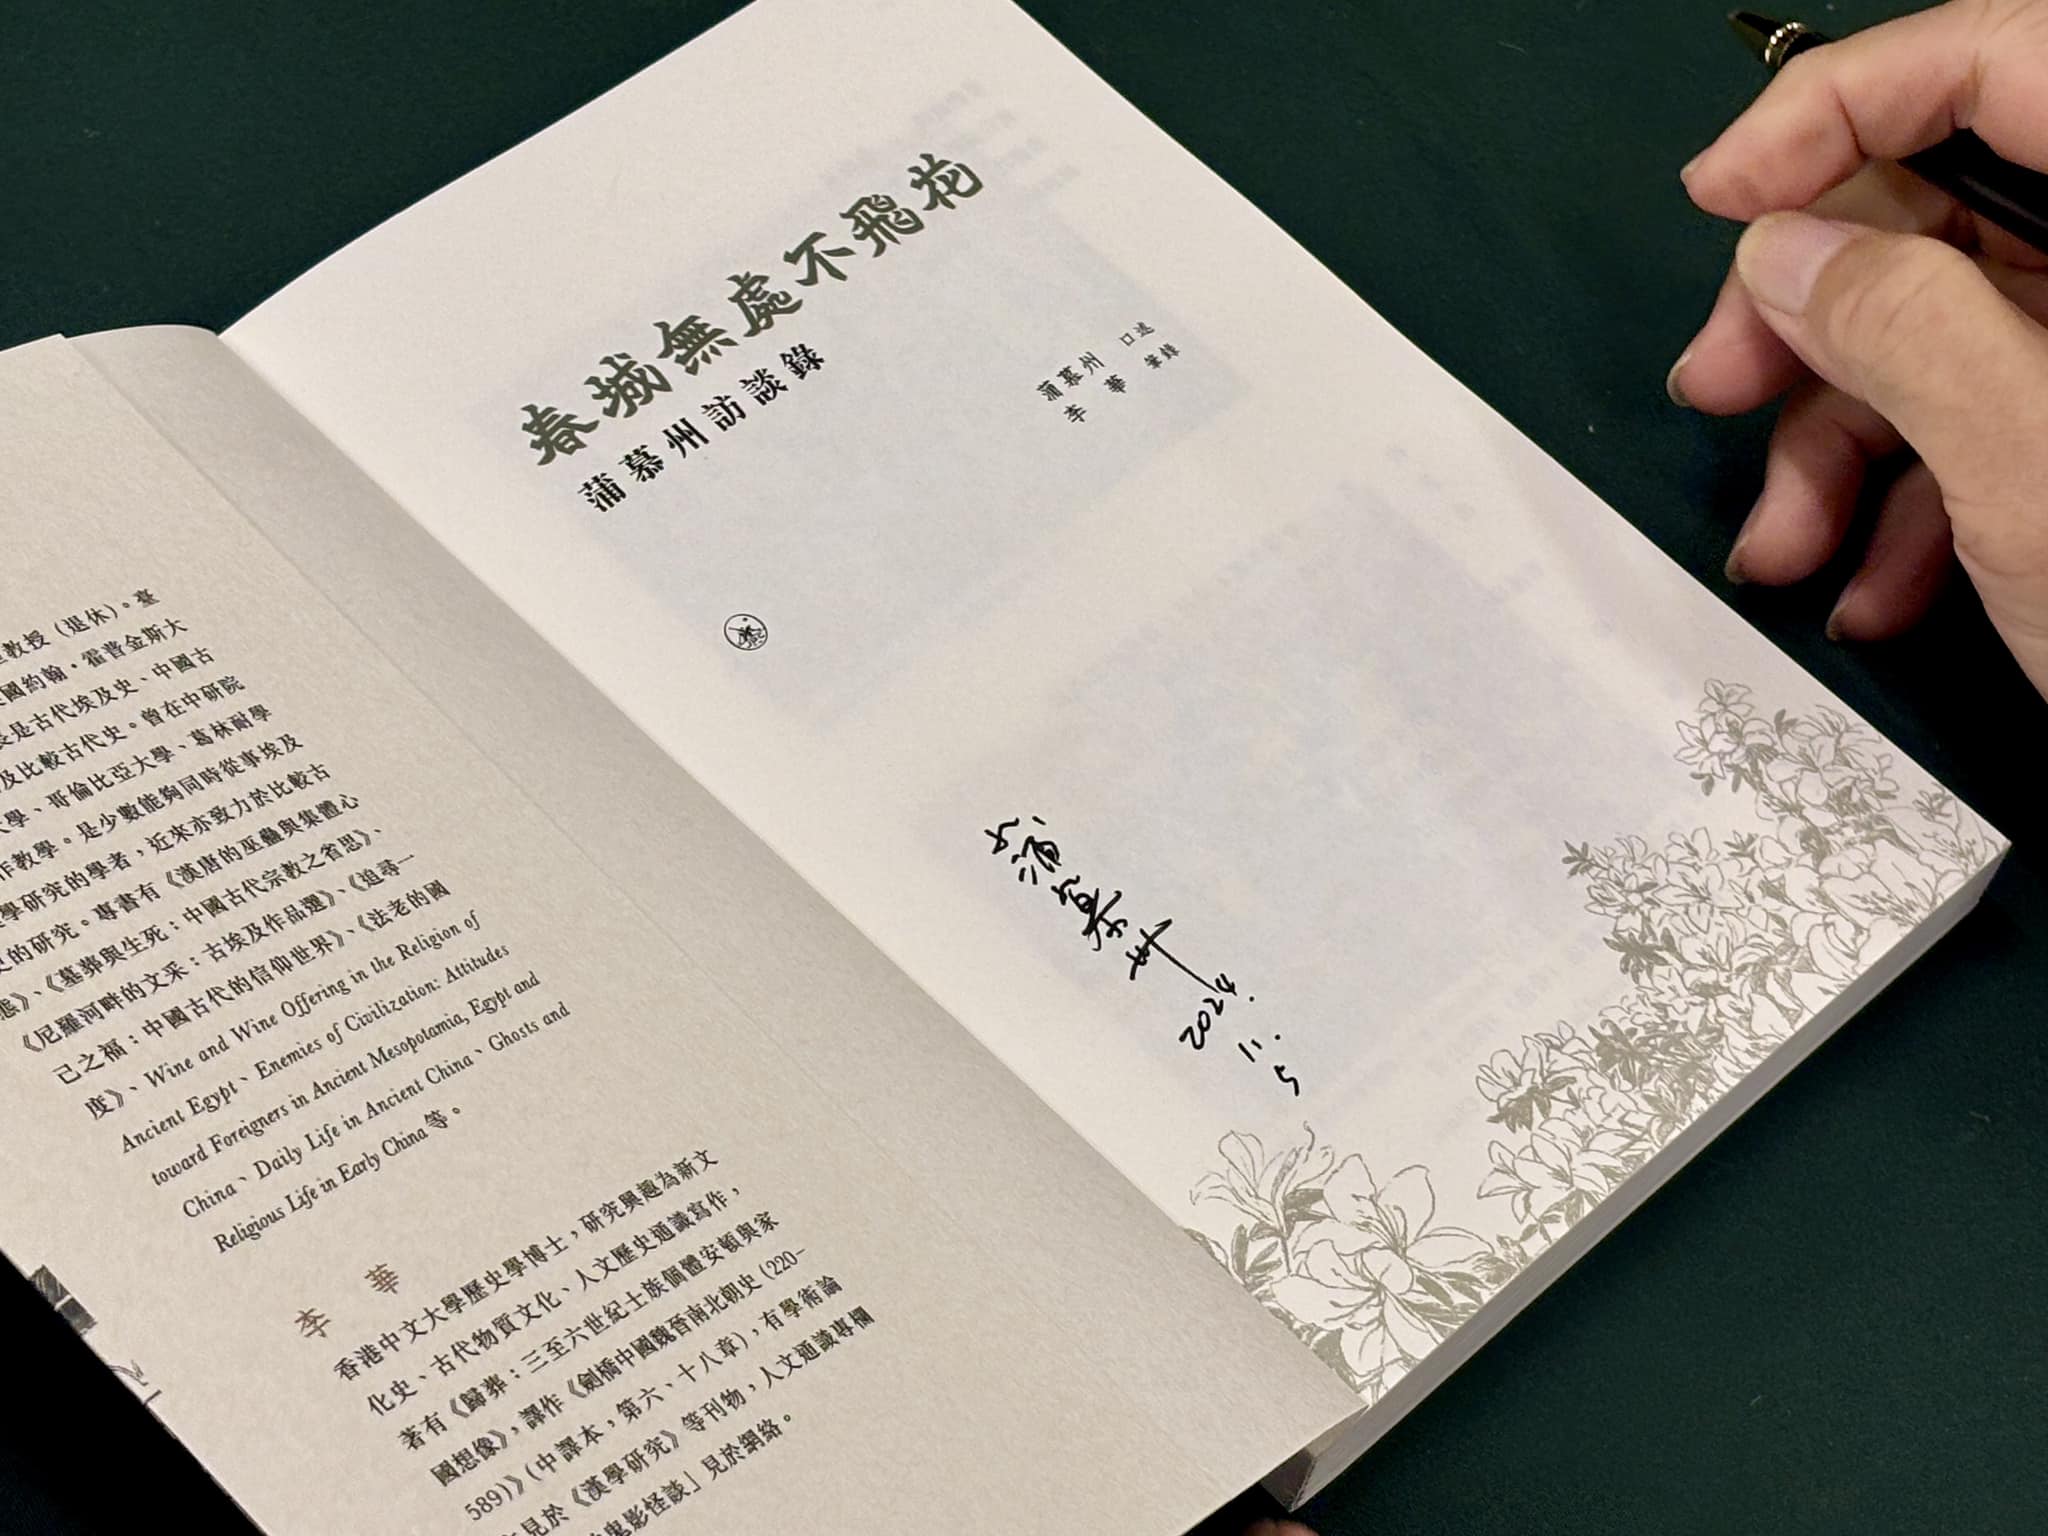 春城無處不飛花
蒲慕州訪談錄
蒲慕州 口述
李 華 筆錄
蒲慕州
2024.
11.
5
教授（退休）。臺
國約翰·霍普金斯大
是古代埃及史、中國古
及比較古代史。曾在中研院
大學、哥倫比亞大學、葛林耐學
作教學。是少數能夠同時從事埃及
學研究的學者，近來亦致力於比較古
史的研究。專書有《漢唐的巫蠱與集體心
態》、《墓葬與生死：中國古代宗教之省思》、
《尼羅河畔的文采：古埃及作品選》、《追尋一
己之福：中國古代的信仰世界》、《法老的國
度》、Wine and Wine Offering in the Religion of
Ancient Egypt、Enemies of Civilization: Attitudes
toward Foreigners in Ancient Mesopotamia, Egypt and
China、Daily Life in Ancient China、Ghosts and
Religious Life in Early China 等。
李 華
香港中文大學歷史學博士，研究興趣為新文
化史、古代物質文化、人文歷史通識寫作，
著有《歸葬：三至六世紀士族個體安頓與家
國想像》，譯作《劍橋中國魏晉南北朝史（220–
589）》（中譯本，第六、十八章），有學術論
見於《漢學研究》等刊物，人文通識專欄
鬼影怪談」見於網絡。